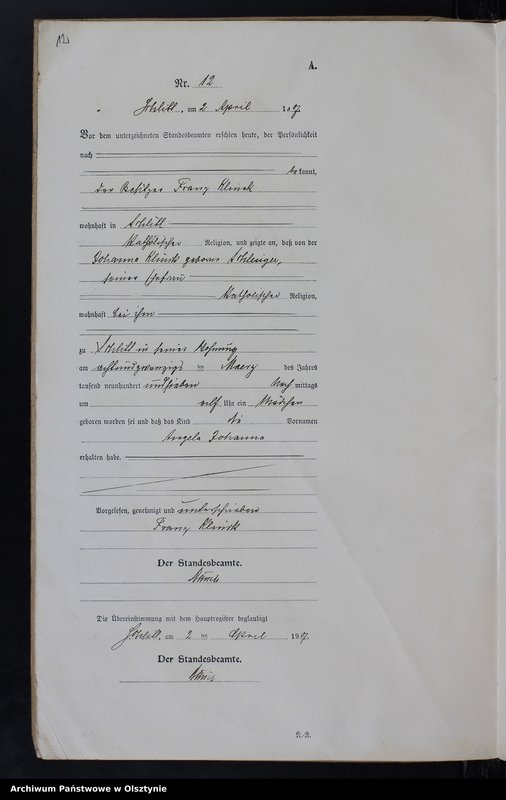 12
A.
Nr. 12
Schlitt, am 2 April 1907
Vor dem unterzeichneten Standesbeamten erschien heute, der Persönlichkeit
nach
bekannt,
der Besitzer Franz Klinik
wohnhaft in Schlitt
Katholischer Religion, und zeigte an, daß von der
Johanna Klinik geborne Schlesiger,
seiner Ehefrau
Katholischer Religion,
wohnhaft bei ihm
zu Schlitt in seiner Wohnung
am achtundzwanzigsten Maerz des Jahres
tausend neunhundert und sieben Nach mittags
um elf Uhr ein Mädchen
geboren worden sei und daß das Kind die Vornamen
Angela Johanna
erhalten habe.
Vorgelesen, genehmigt und unterschrieben
Franz Klinik
Der Standesbeamte.
Die Übereinstimmung mit dem Hauptregister beglaubigt
Schlitt, am 2 ten April 1907.
Der Standesbeamte.
Archiwum Państwowe w Olsztynie